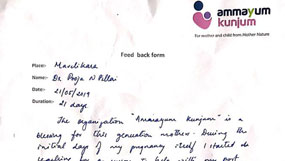 ammayum
kunjum
For mother and child from Mother Nature
Feed back form
Place:- Mavelikara
Name:- Dr Pooja N Pillai
Date:- 21/05/2019
Duration:- 21 days
The organization "Ammayum Kunjum" is a
blessing for this generation mothers. During the
initial days of my pregnancy itself I started do